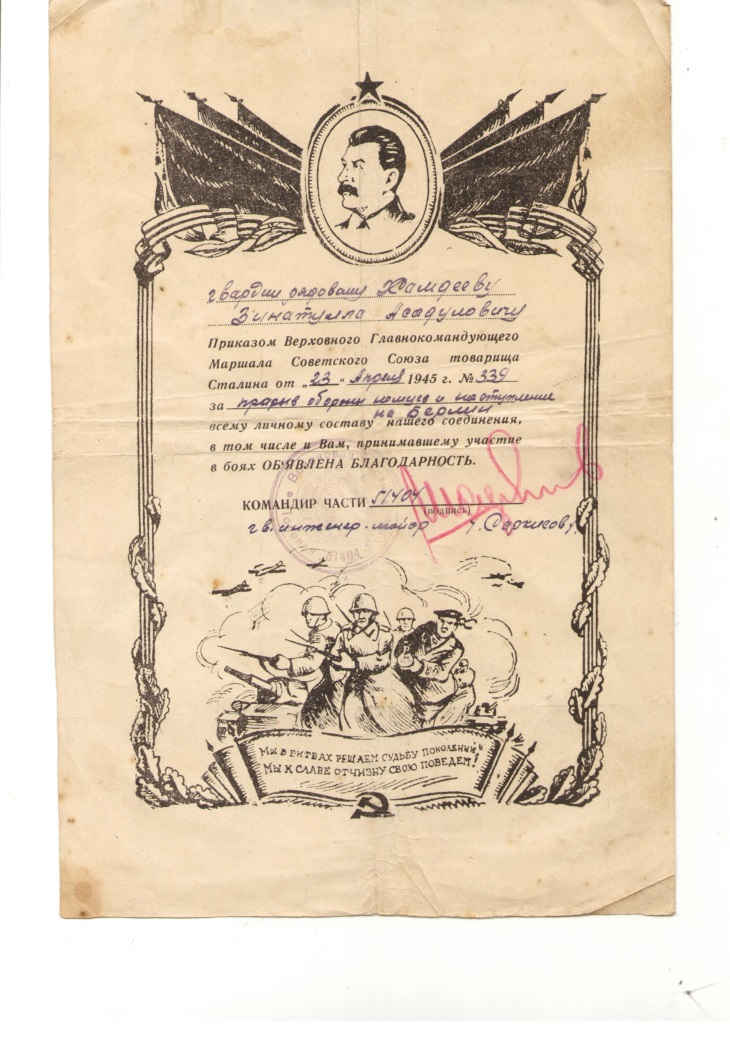 гвардии рядовому Хамдееву
Зинатулла Асадуловичу
Приказом Верховного Главнокомандующего
Маршала Советского Союза товарища
Сталина от „23" Апреля 1945 г. № 339
за прорыв обороны немцев и наступление
на Берлин
всему личному составу нашего соединения,
в том числе и Вам, принимавшему участие
в боях ОБ'ЯВЛЕНА БЛАГОДАРНОСТЬ.
КОМАНДИР ЧАСТИ 51404
(подпись)
гв. инженер-майор
51404
МЫ В БИТВАХ РЕШАЕМ СУДЬБУ ПОКОЛЕНИЙ
МЫ К СЛАВЕ ОТЧИЗНУ СВОЮ ПОВЕДЕМ!